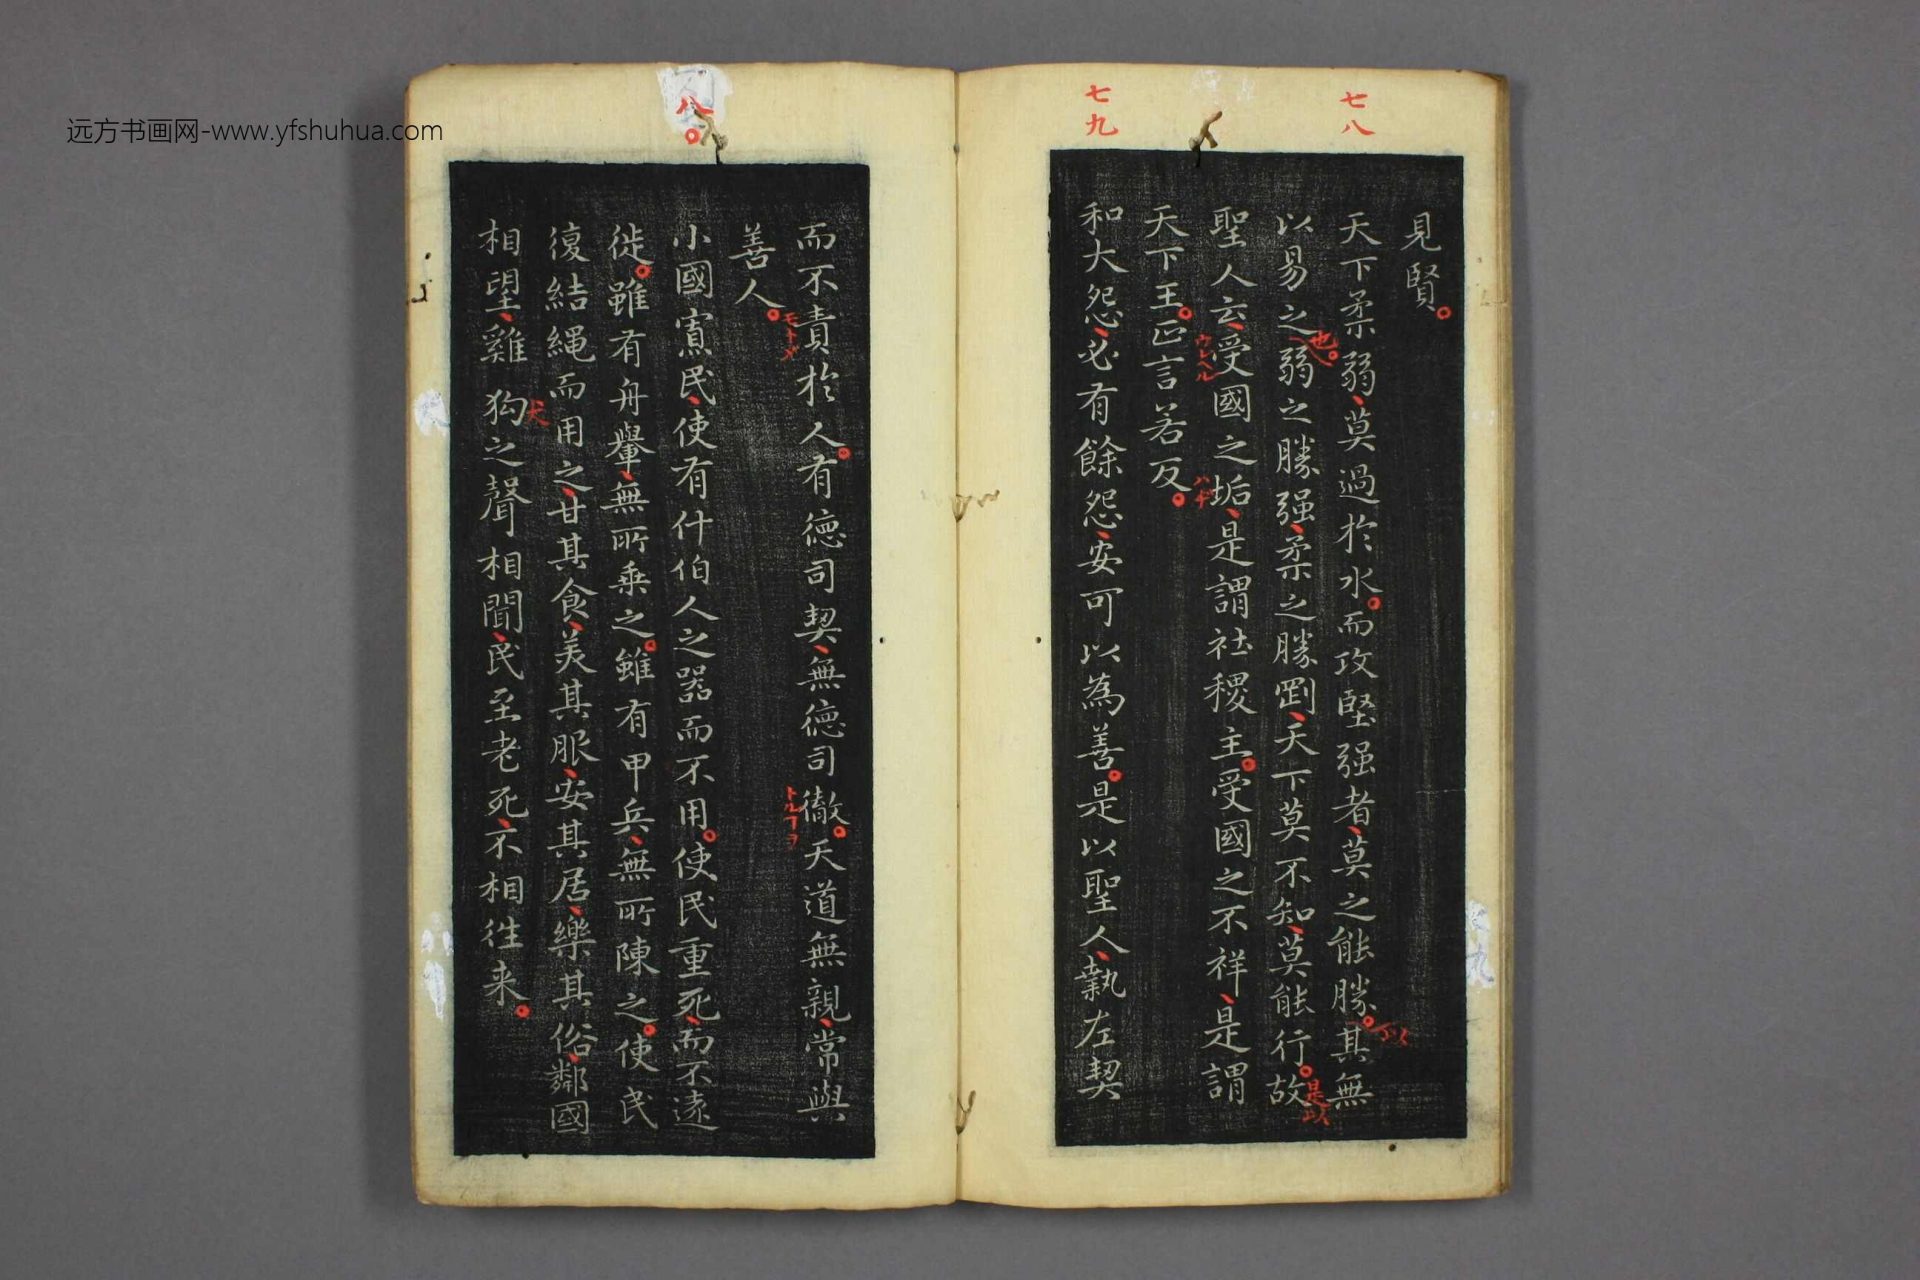 远方书画网-www.yfshuhua.com
七八
七九
八
見賢
天下柔弱莫過於水而攻堅强者莫之能勝其無
以
以易之弱之勝强柔之勝剛天下莫不知莫能行故
也
是以
聖人云受國之垢是謂社稷主受國之不祥是謂
ハチ
天下王正言若反
和大怨必有餘怨安可以為善是以聖人執左契
而不責於人有德司契無德司徹天道無親常與
モトメ
善人
小國寡民使有什伯人之器而不用使民重死而不遠
徙雖有舟轝無所乘之雖有甲兵無所陳之使民
復結繩而用之甘其食美其服安其居樂其俗鄰國
相望雞狗之聲相聞民至老死不相往来
犬
九